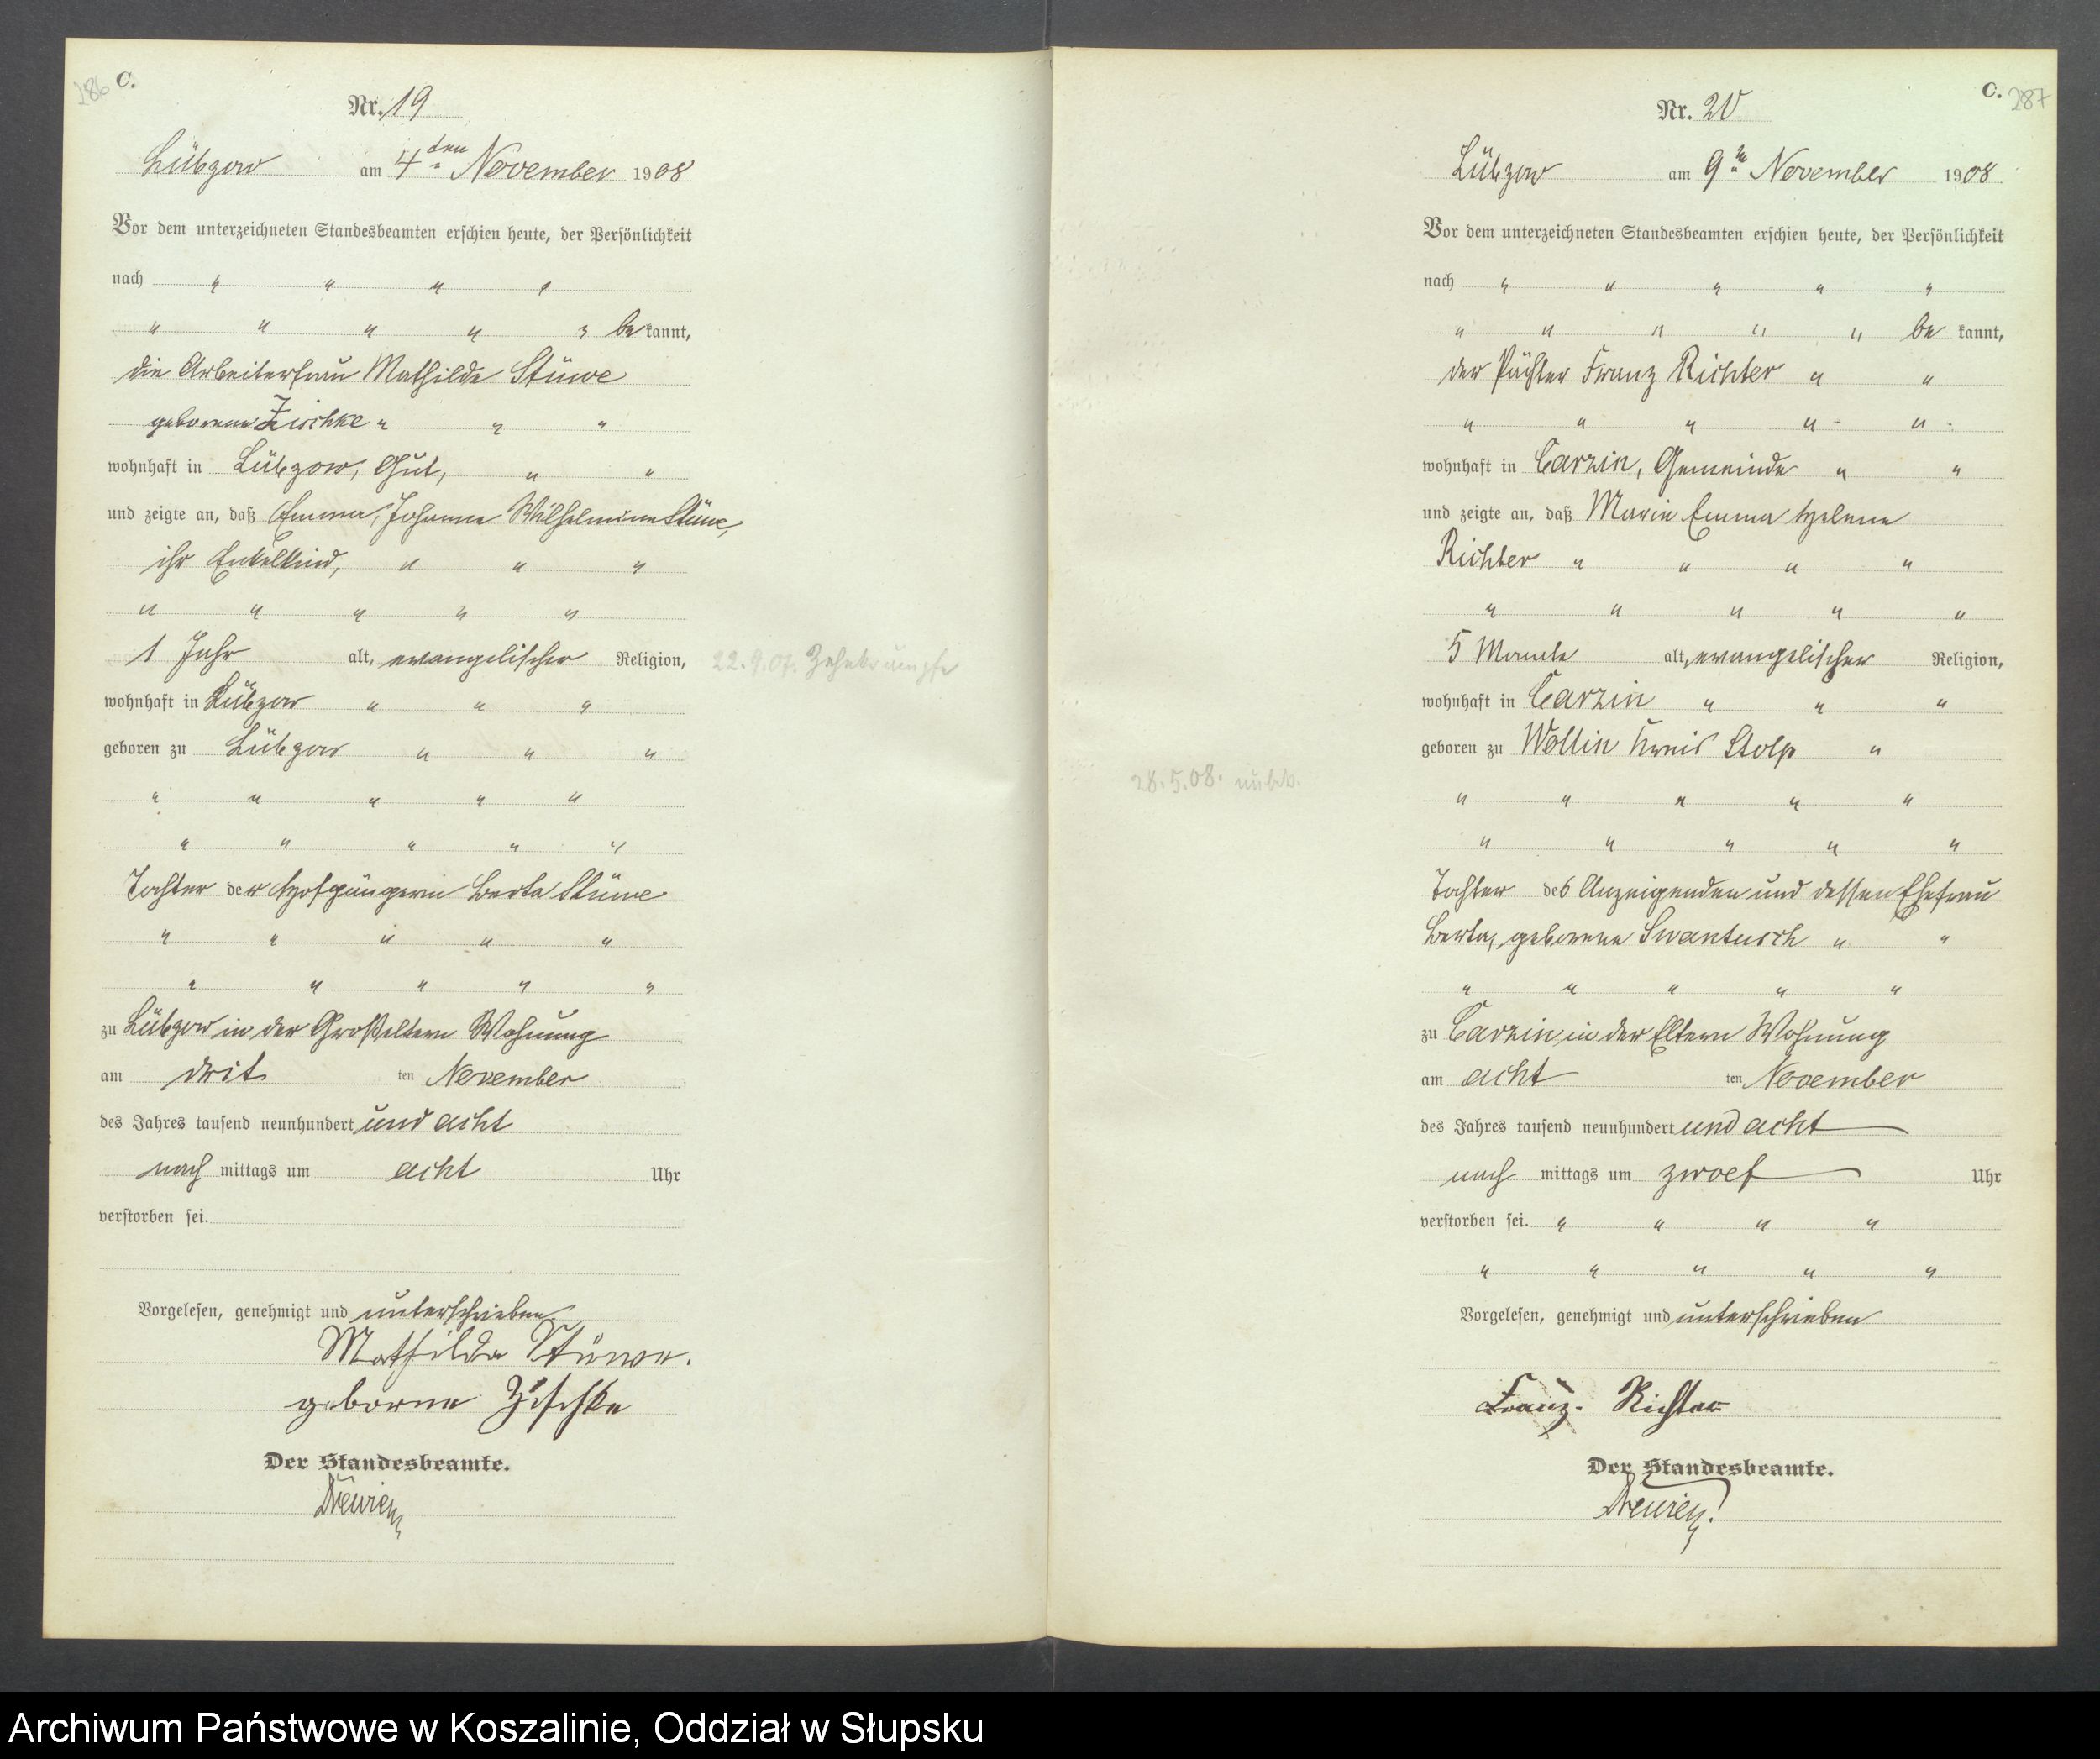 286
C.
Nr. 19
Lübzow am 4ten November 1908
Vor dem unterzeichneten Standesbeamten erschien heute, der Persönlichkeit
nach " " " "
" " " " " be kannt,
die Arbeiterfrau Mathilde Stüwe
geborene Zischke " " "
wohnhaft in Lübzow, Gut, " "
und zeigte an, daß Emma, Johanne Wilhelmine Stüwe,
ihr Enkelkind, " " "
" " " " "
1 Jahr alt, evangelischer Religion,
22.9.07. Zahnkrämpfe
wohnhaft in Lübzow " " "
geboren zu Lübzow " " "
" " " " "
" " " " "
Tochter der Hofgängerin Berta Stüwe
" " " " "
" " " " "
zu Lübzow in der Großeltern Wohnung
am drit ten November
des Jahres tausend neunhundert und acht
nach mittags um acht Uhr
verstorben sei.
Vorgelesen, genehmigt und unterschrieben
Mathilda Stüwe.
geborne Zischke
Der Standesbeamte.
C. 287
Nr. 20
Lübzow am 9ten November 1908
Vor dem unterzeichneten Standesbeamten erschien heute, der Persönlichkeit
nach " " " " "
" " " " " be kannt,
der Pächter Franz Richter " "
" " " " "
wohnhaft in Carzin, Gemeinde " "
und zeigte an, daß Marie Emma Helene
Richter " " " "
" " " " "
5 Monate alt, evangelischer Religion,
wohnhaft in Carzin " " "
geboren zu Wollin Kreis Stolp "
28.5.08.
" " " " "
" " " " "
Tochter des Anzeigenden und dessen Ehefrau
Berta, geborene Swantusch " "
" " " " "
zu Carzin, in der Eltern Wohnung
am acht ten November
des Jahres tausend neunhundert und acht
nach mittags um zwoelf Uhr
verstorben sei. " " " "
" " " " "
Vorgelesen, genehmigt und unterschrieben
Franz. Richter
Der Standesbeamte.
Archiwum Państwowe w Koszalinie, Oddział w Słupsku